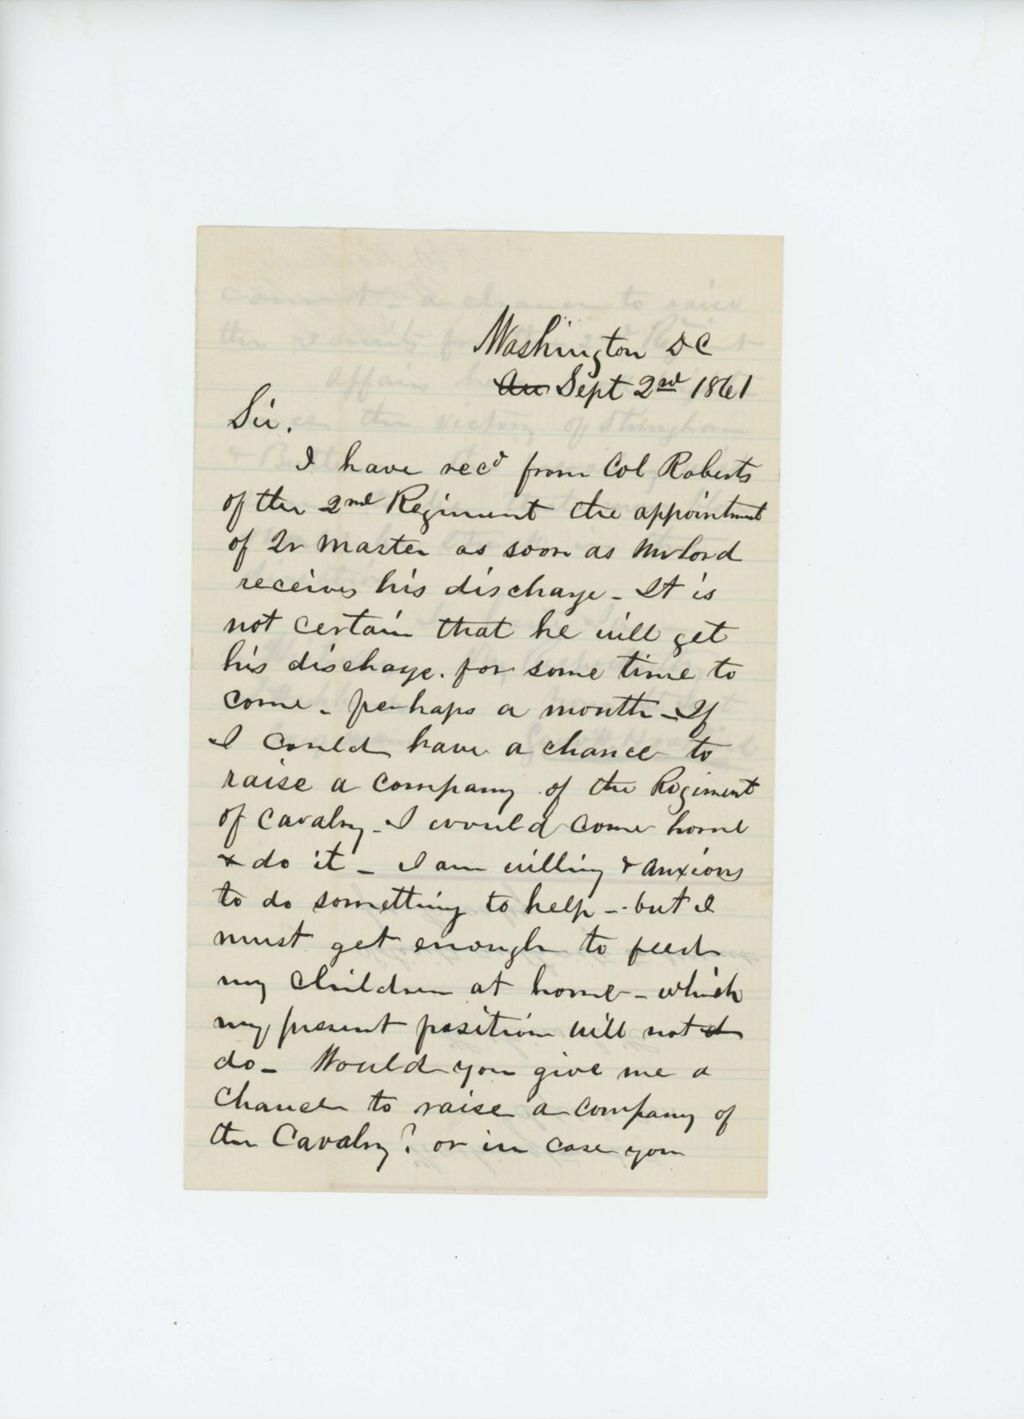 Washington DC
Au Sept 2nd 1861
Sir.
I have recd from Col Roberts
of the 2nd Regiment the appointment
of Qr Master as soon as Mr Lord
receives his discharge - It is
not certain that he will get
his discharge. for some time to
come - perhaps a month - If
I could have a chance to
raise a company of the Regiment
of Cavalry - I would come home
& do it - I am willing & anxious
to do something to help - but I
must get enough to feed
my children at home - which
my present position will not d
do - Would you give me a
chance to raise a company of
the Cavalry? or in case you